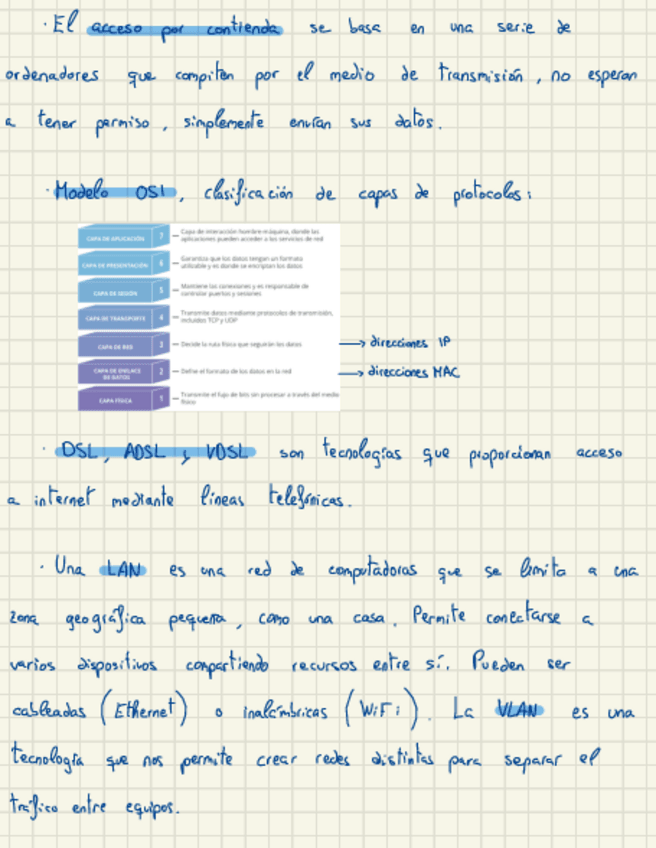 · El acceso por contienda se basa en una serie de
ordenadores que compiten por el medio de transmisión, no esperan
a tener permiso, simplemente envían sus datos.
· Modelo OSI, clasificación de capas de protocolos:
CAPA DE APLICACIÓN 7 Capa de interacción hombre máquina, donde las
aplicaciones pueden acceder a los servicios de red
CAPA DE PRESENTACIÓN 6 Garantiza que los datos tengan un formato
utilizable y es donde se encriptan los datos
CAPA DE SESIÓN 5 Mantiene las conexiones y es responsable de
controlar puertos y sesiones
CAPA DE TRANSPORTE 4 Transmite datos mediante protocolos de transmisión,
incluidos TCP y UDP
CAPA DE RED 3 Decide la ruta física que seguirán los datos → direcciones IP
CAPA DE ENLACE
DE DATOS 2 Define el formato de los datos en la red → direcciones MAC
CAPA FÍSICA 1 Transmite el flujo de bits sin procesar a través del medio
físico
· DSL, ADSL y VDSL son tecnologías que proporcionan acceso
a internet mediante líneas telefónicas.
· Una LAN es una red de computadoras que se limita a una
zona geográfica pequeña, como una casa. Permite conectarse a
varios dispositivos compartiendo recursos entre sí. Pueden ser
cableadas (Ethernet) o inalámbricas (WiFi). La VLAN es una
tecnología que nos permite crear redes distintas para separar el
tráfico entre equipos.